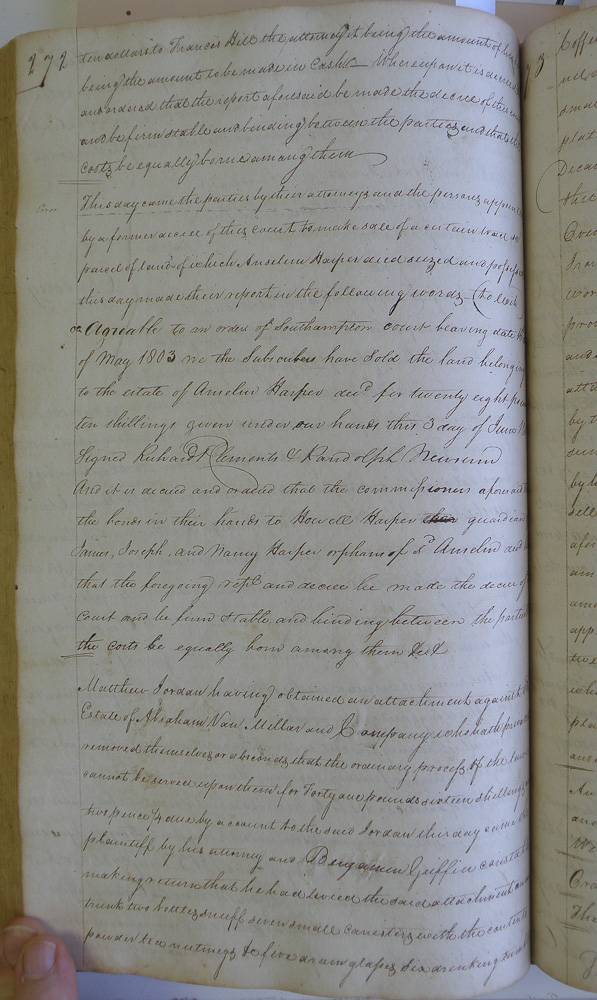 272
ten dollars to Francis Hill the attorney it being the amount of his
being the amount to be made in Cash — Whereupon it is decreed
and ordered that the report aforesaid be made the decree of the
and be firm stable and binding between the parties and that the
costs be equally borne among them
This day came the parties by their attorneys and the persons appoin
by a former decree of this Court to make sale of a certain tract or
parcel of land of which Anselm Harper died seized and possessed
this day made their report in the following words (to wit)
Agreable to an order of Southampton court bearing date
of May 1803 we the Subscribers have Sold the land belonging
to the estate of Amselm Harper decd for twenty eight poun
ten shillings given under our hands this 3 day of June
Signed Richard Clements & Randolph Newsum
And it is decreed and ordered that the commissioners aforesaid
the bonds in their hands to Howell Harper guardian
James, Joseph, and Nancy Harper orphans of sd Anselm decd
that the foregoing rept and decree be made the decree of
court and be firm stable and binding between the parties
the costs be equally born among them
Matthew Jordan having obtained an attachment against
Estate of Abraham Van Mellar and Company who hath
removed themselves or absconds that the ordinary process of the law
cannot be served upon them for Forty one pounds sixteen Shillings
two pence 1/4 due by account to the said Jordan this day came the
plaintiff by his attorney and Benjamin Griffin constable
making return that he had levied the said attachment on
trunk two bottles snuff seven small canesters with the contents
powder ten nutmegs & five dram glasses six drinking